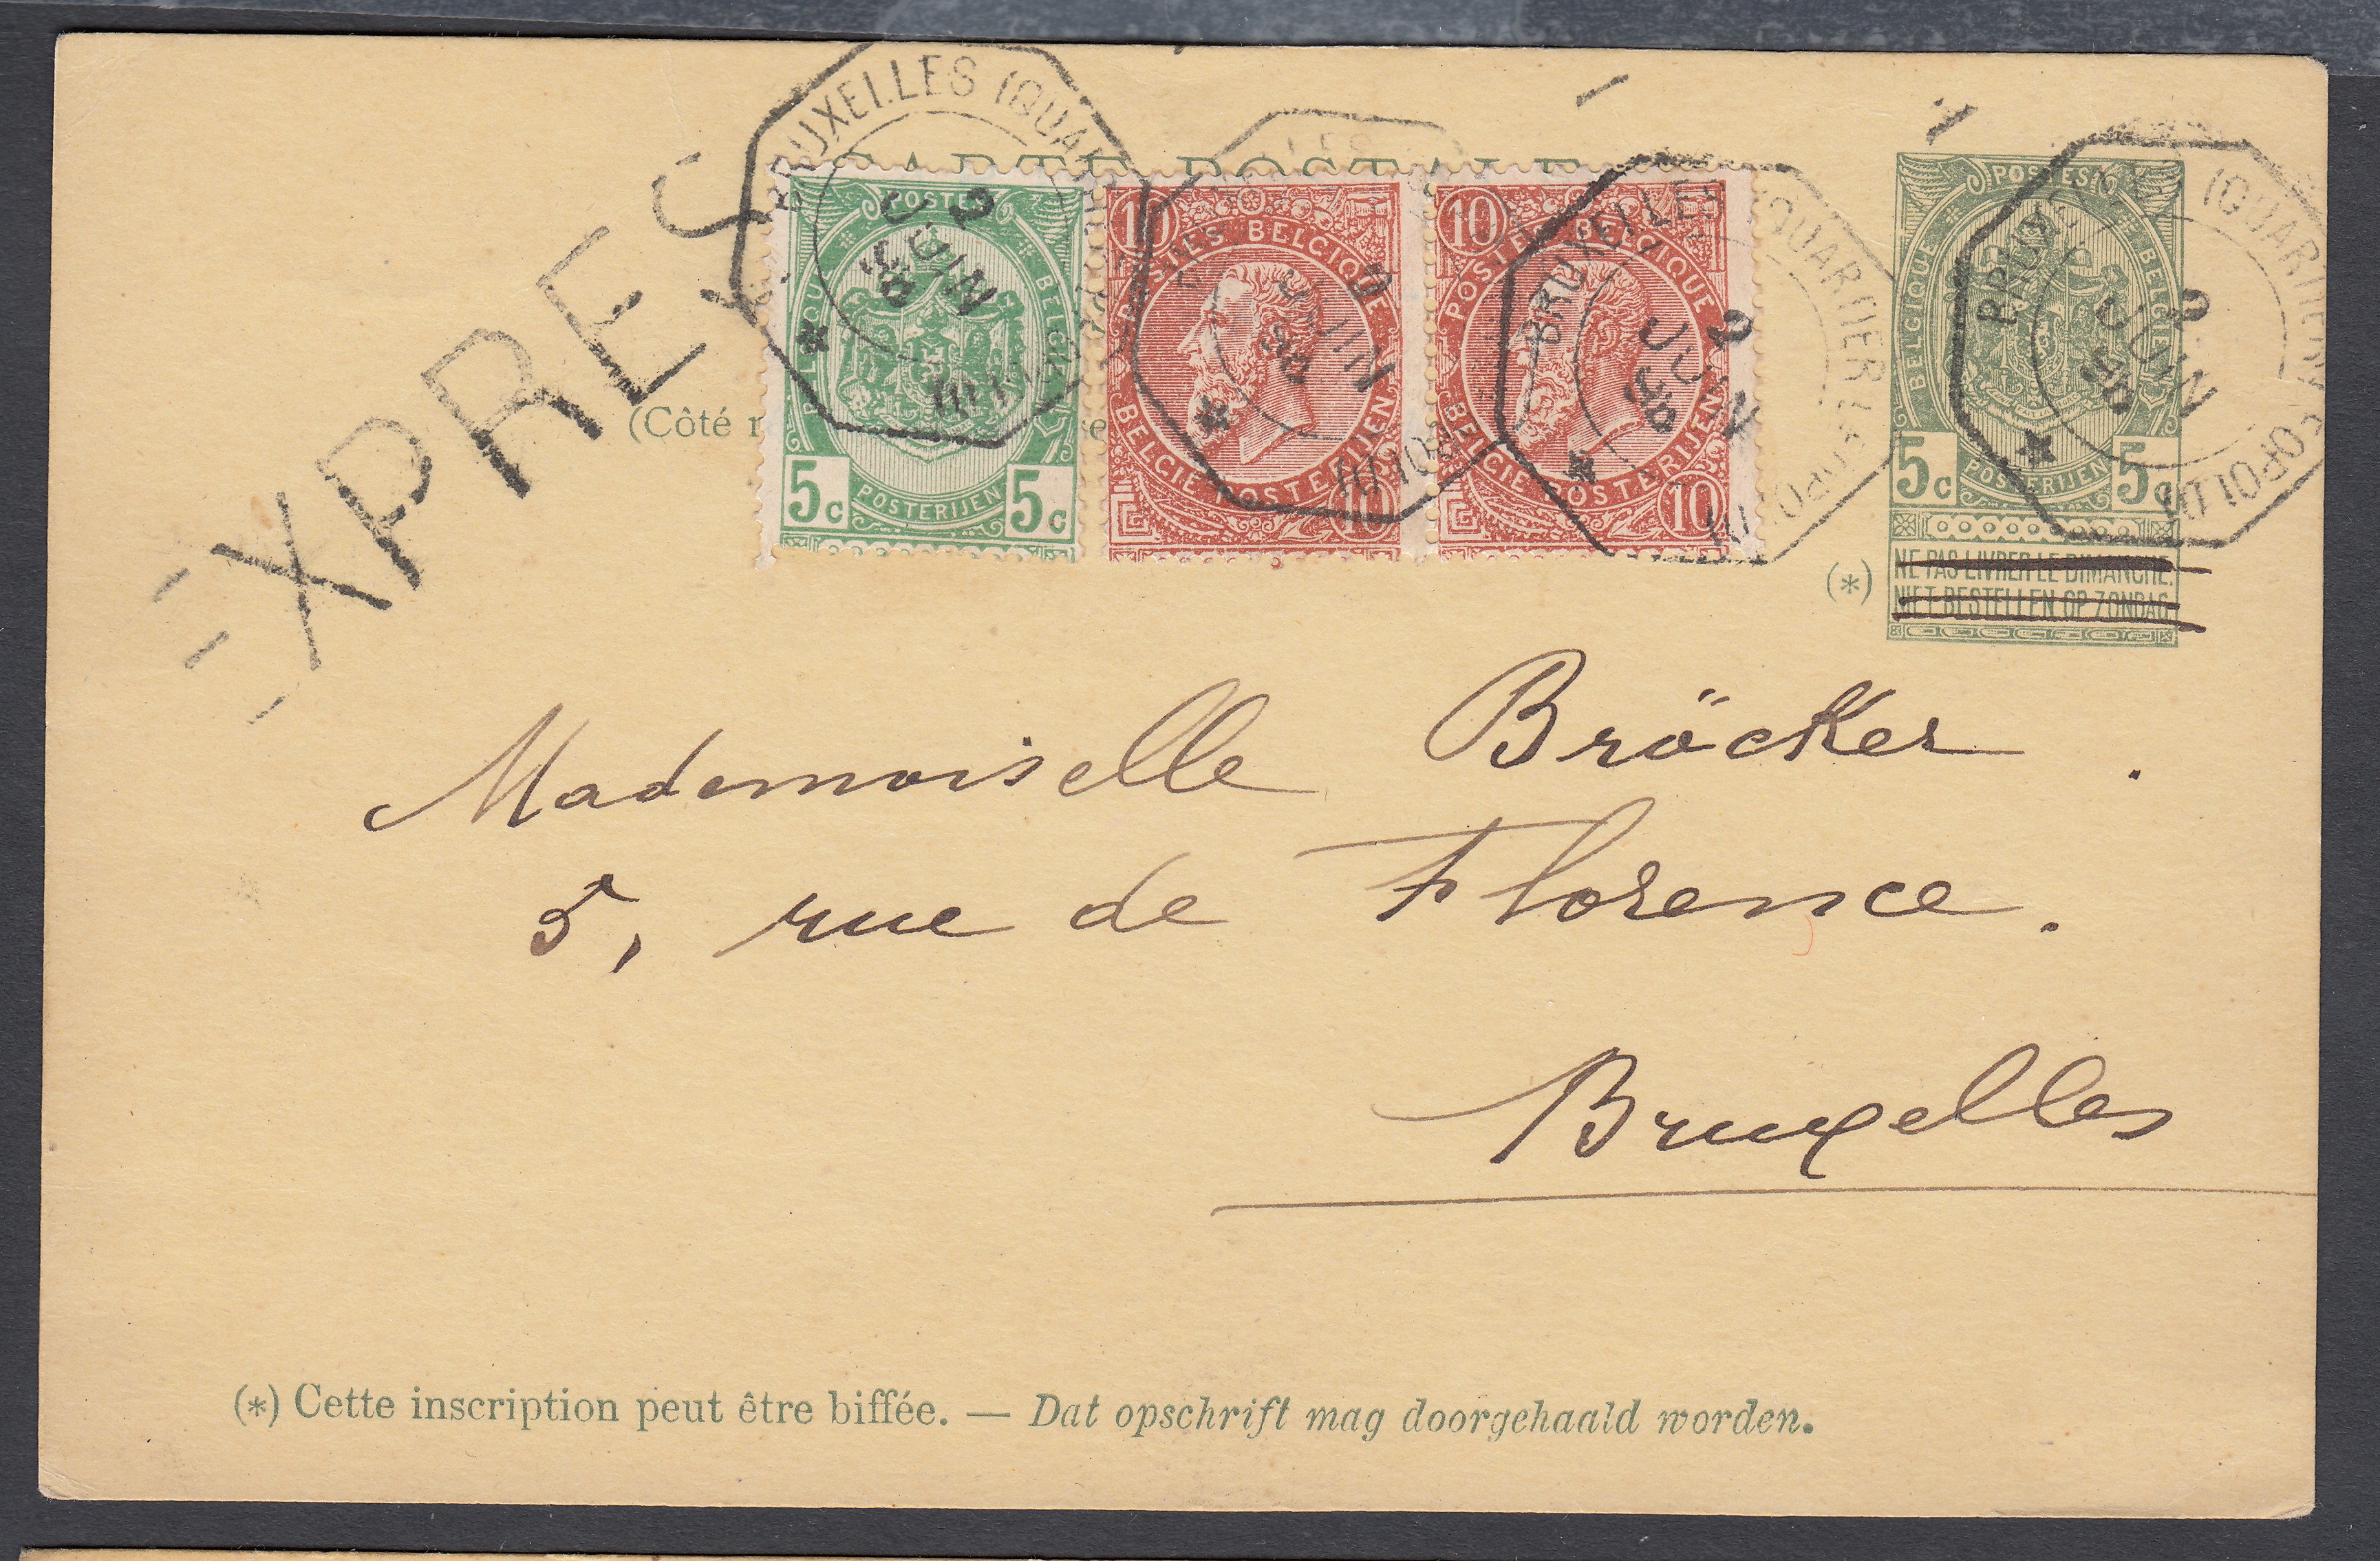 CARTE POSTALE
EXPRES
BRUXELLES (QUA
2
JUIN
POSTES
BELGIQUE
BELGIË
5c POSTERIJEN 5c
10
POSTES BELGIQUE
BELGIE POSTERIJEN
10
2
JUIN
10
POSTES BELGIQUE
BELGIE POSTERIJEN
10
BRUXELLES (QUARTIER LEOPOLD)
2
JUIN
POSTES
BELGIQUE
BELGIË
5c POSTERIJEN 5c
BRUXELLES (QUARTIER LEOPOLD)
2
JUIN
(Côté r
(*)
NE PAS LIVRER LE DIMANCHE.
NIET BESTELLEN OP ZONDAG.
Mademoiselle Bröcker.
5, rue de Florence.
Bruxelles
(*) Cette inscription peut être biffée. — Dat opschrift mag doorgehaald worden.